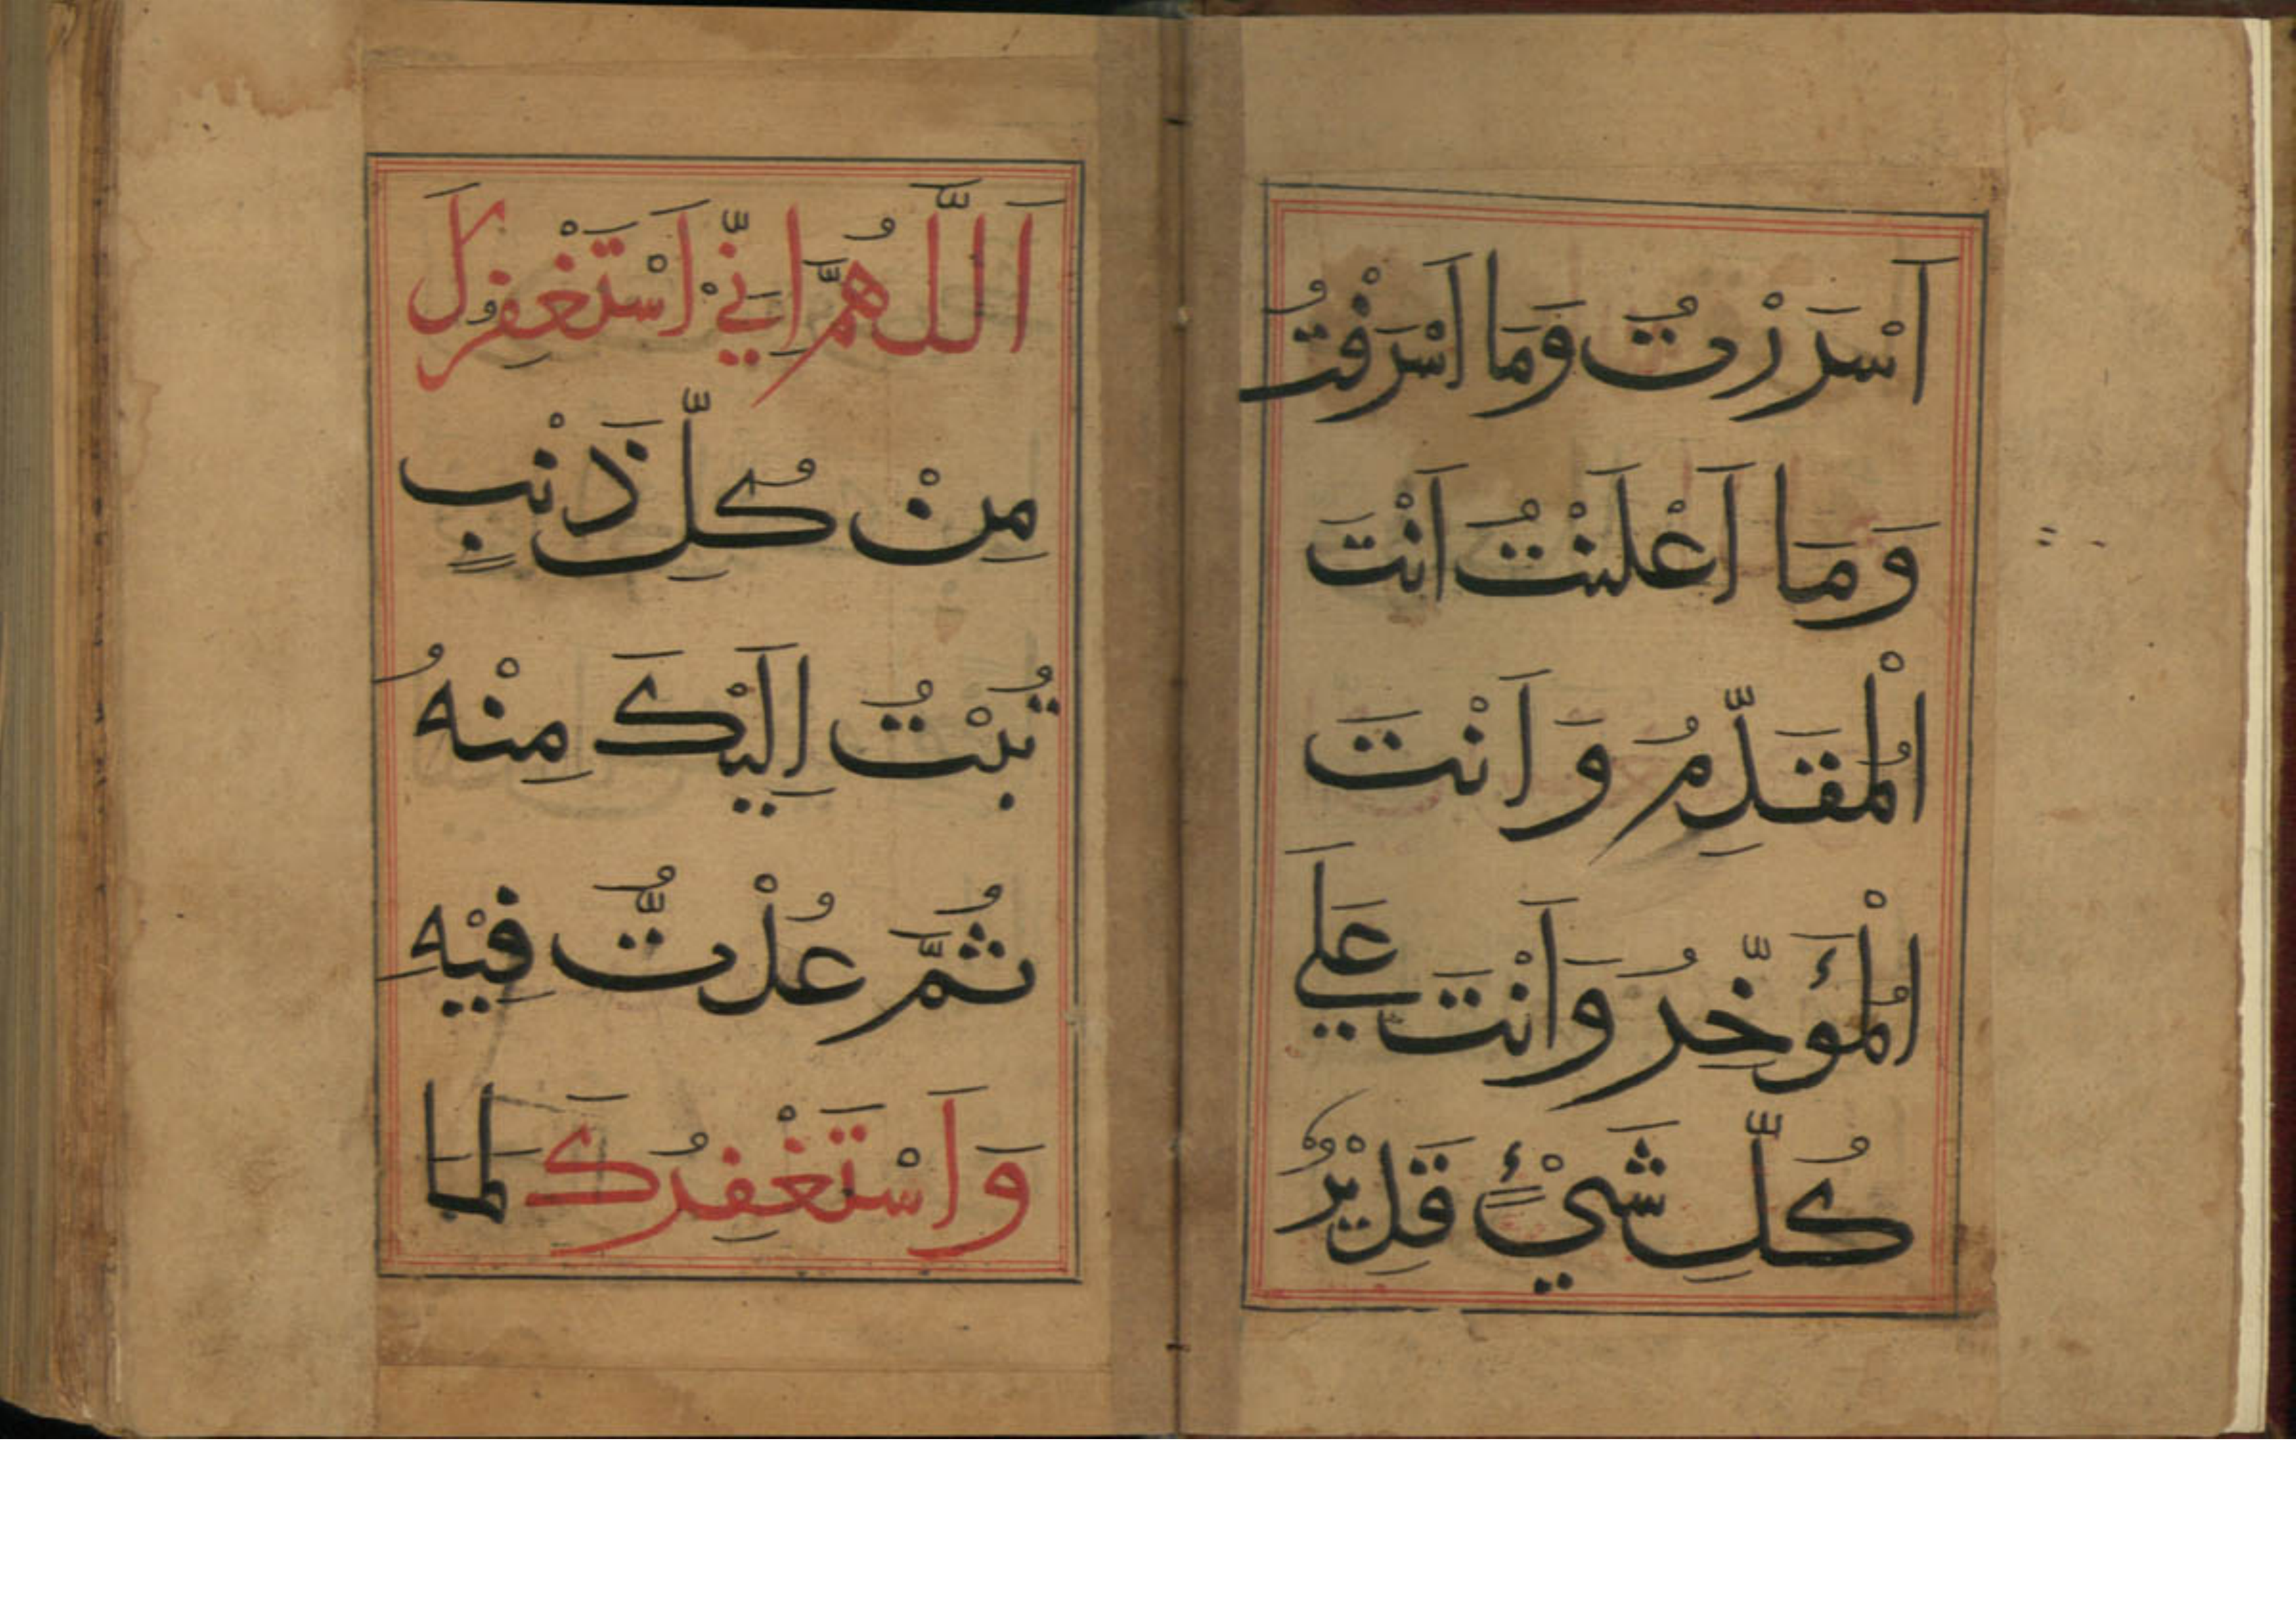 اَسْرَرْتُ وَمَا اَسْرَفْتُ
وَمَا اَعْلَنْتُ اَنْتَ
الْمُقَدِّمُ وَاَنْتَ
الْمُؤَخِّرُ وَاَنْتَ عَلَي
كُلِّ شَيْءٍ قَدِيْرٌ
اَللّٰهُمَّ اِنِّيْ اَسْتَغْفِرُكَ
مِنْ كُلِّ ذَنْبٍ
تُبْتُ اِلَيْكَ مِنْهُ
ثُمَّ عُدْتُّ فِيْهِ
وَاَسْتَغْفِرُكَ لِمَا